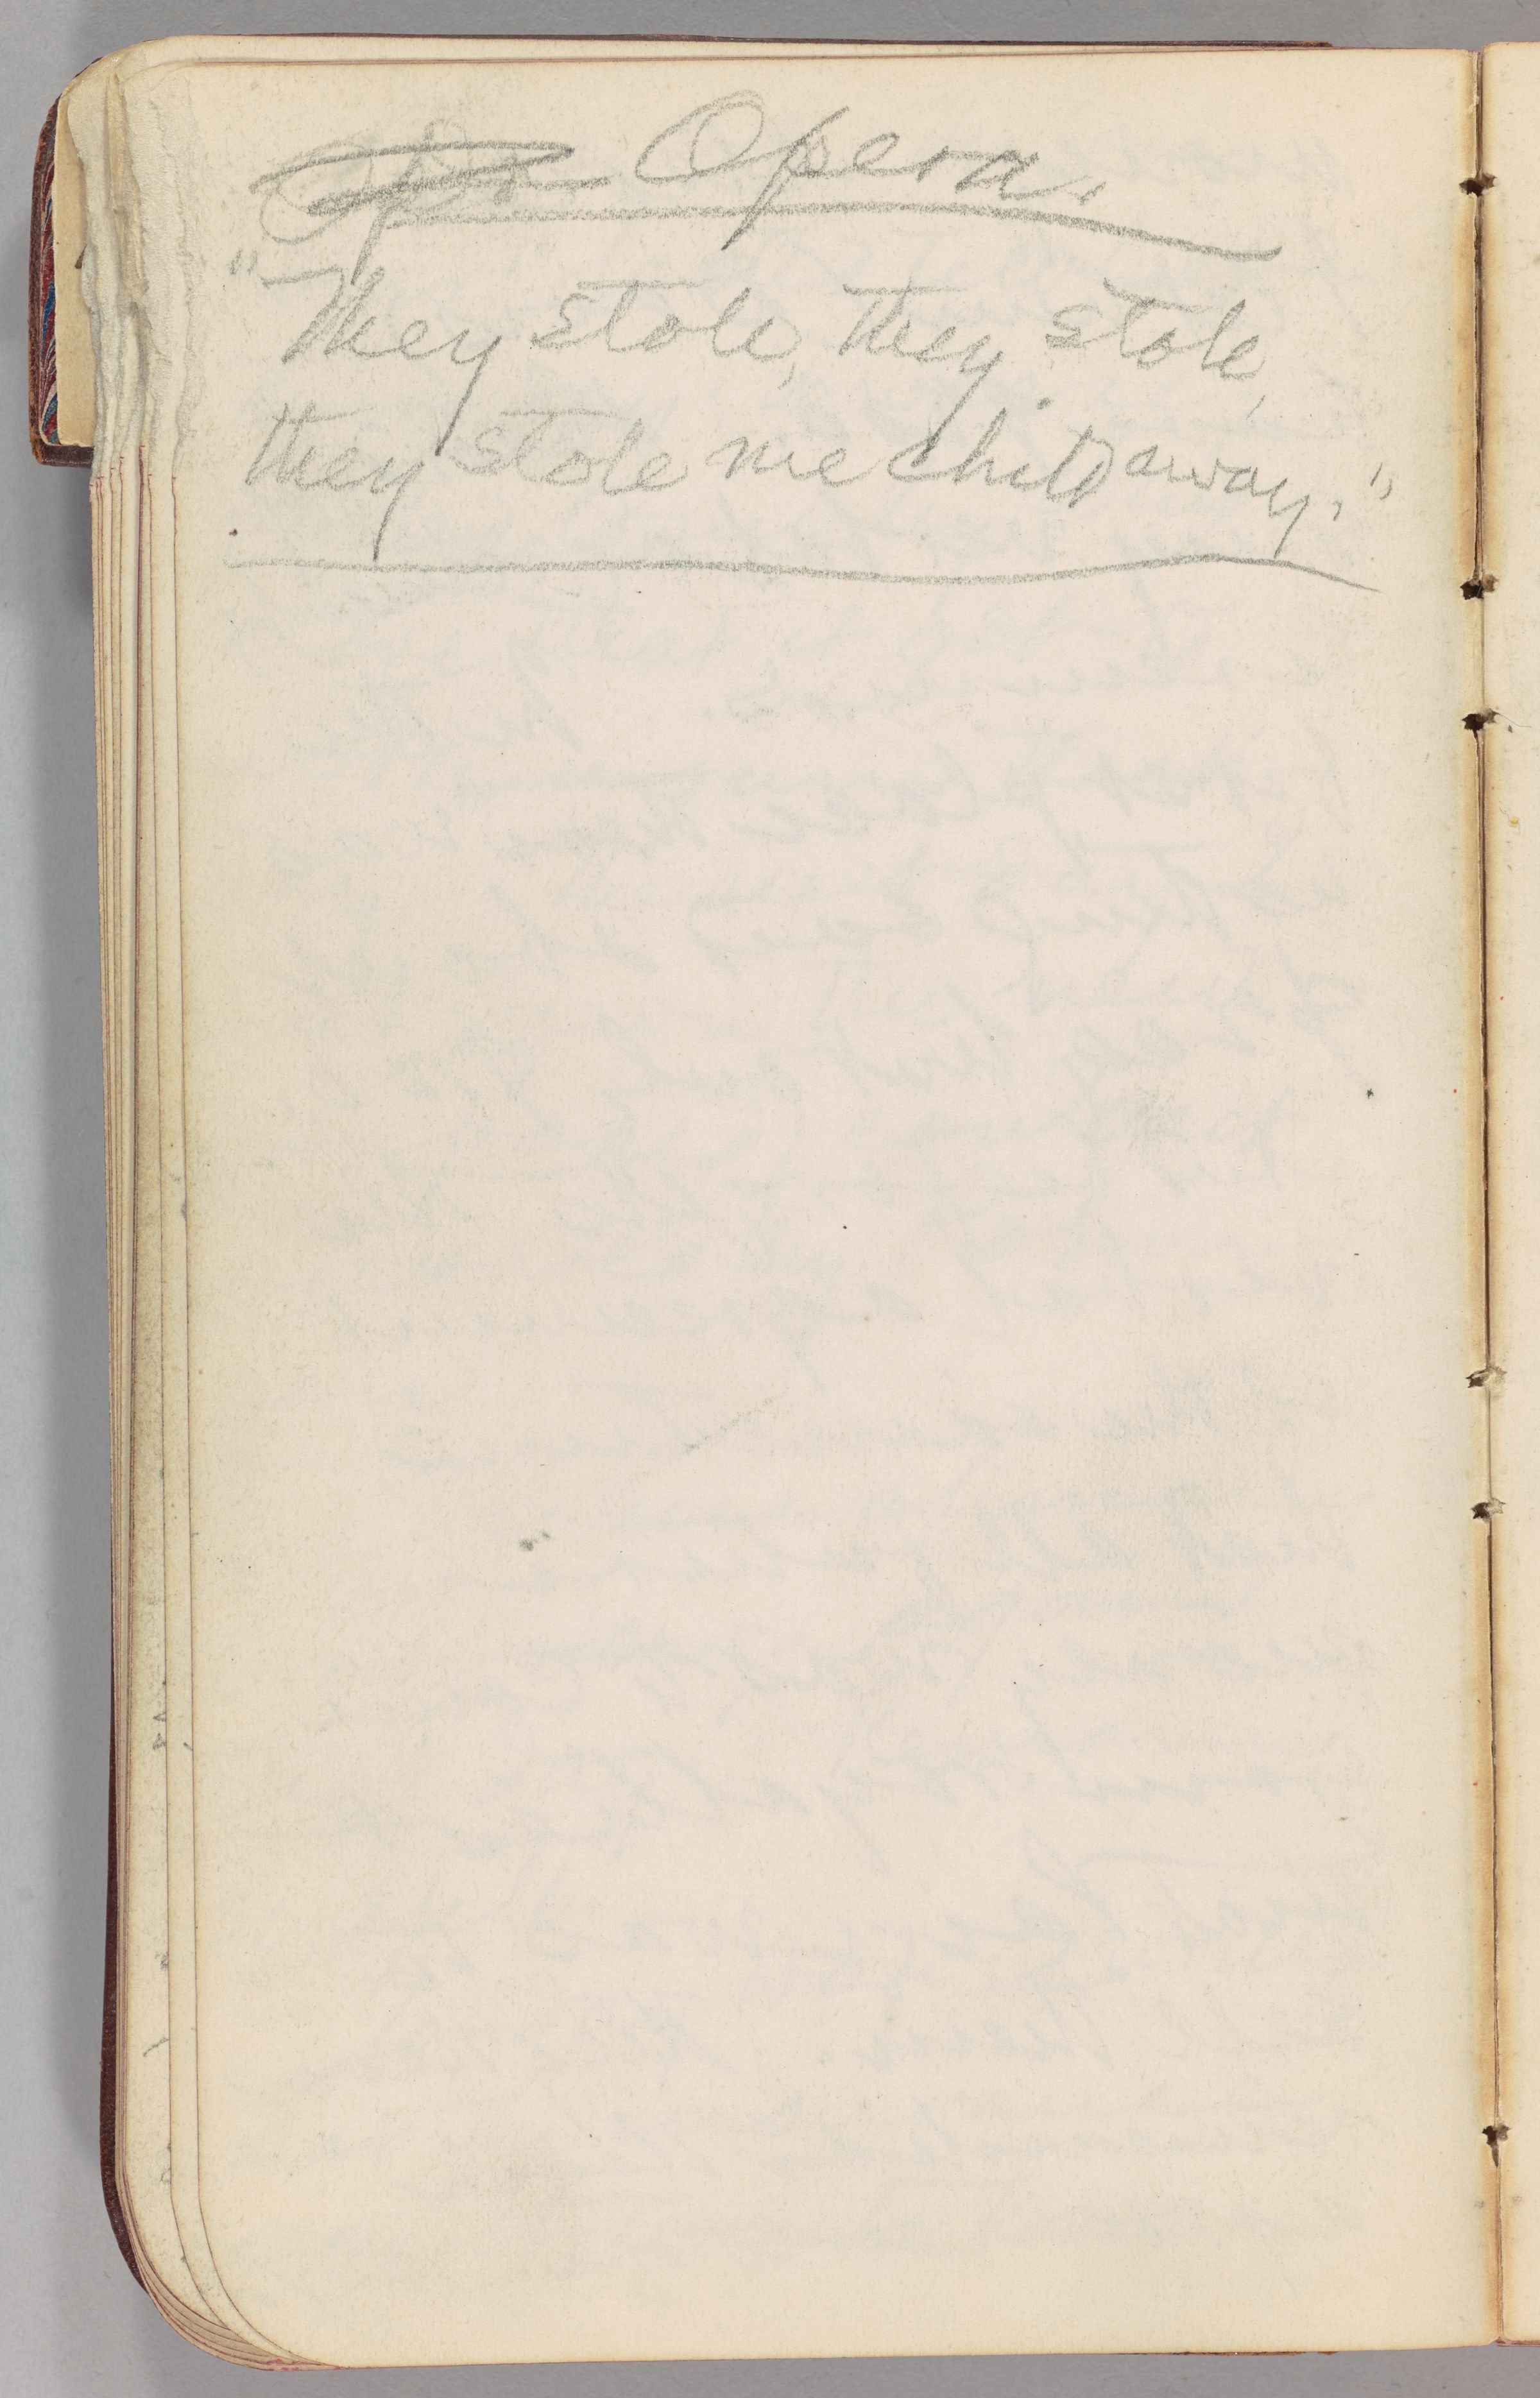 Opera.
"They stole, they stole,
they stole me child away."